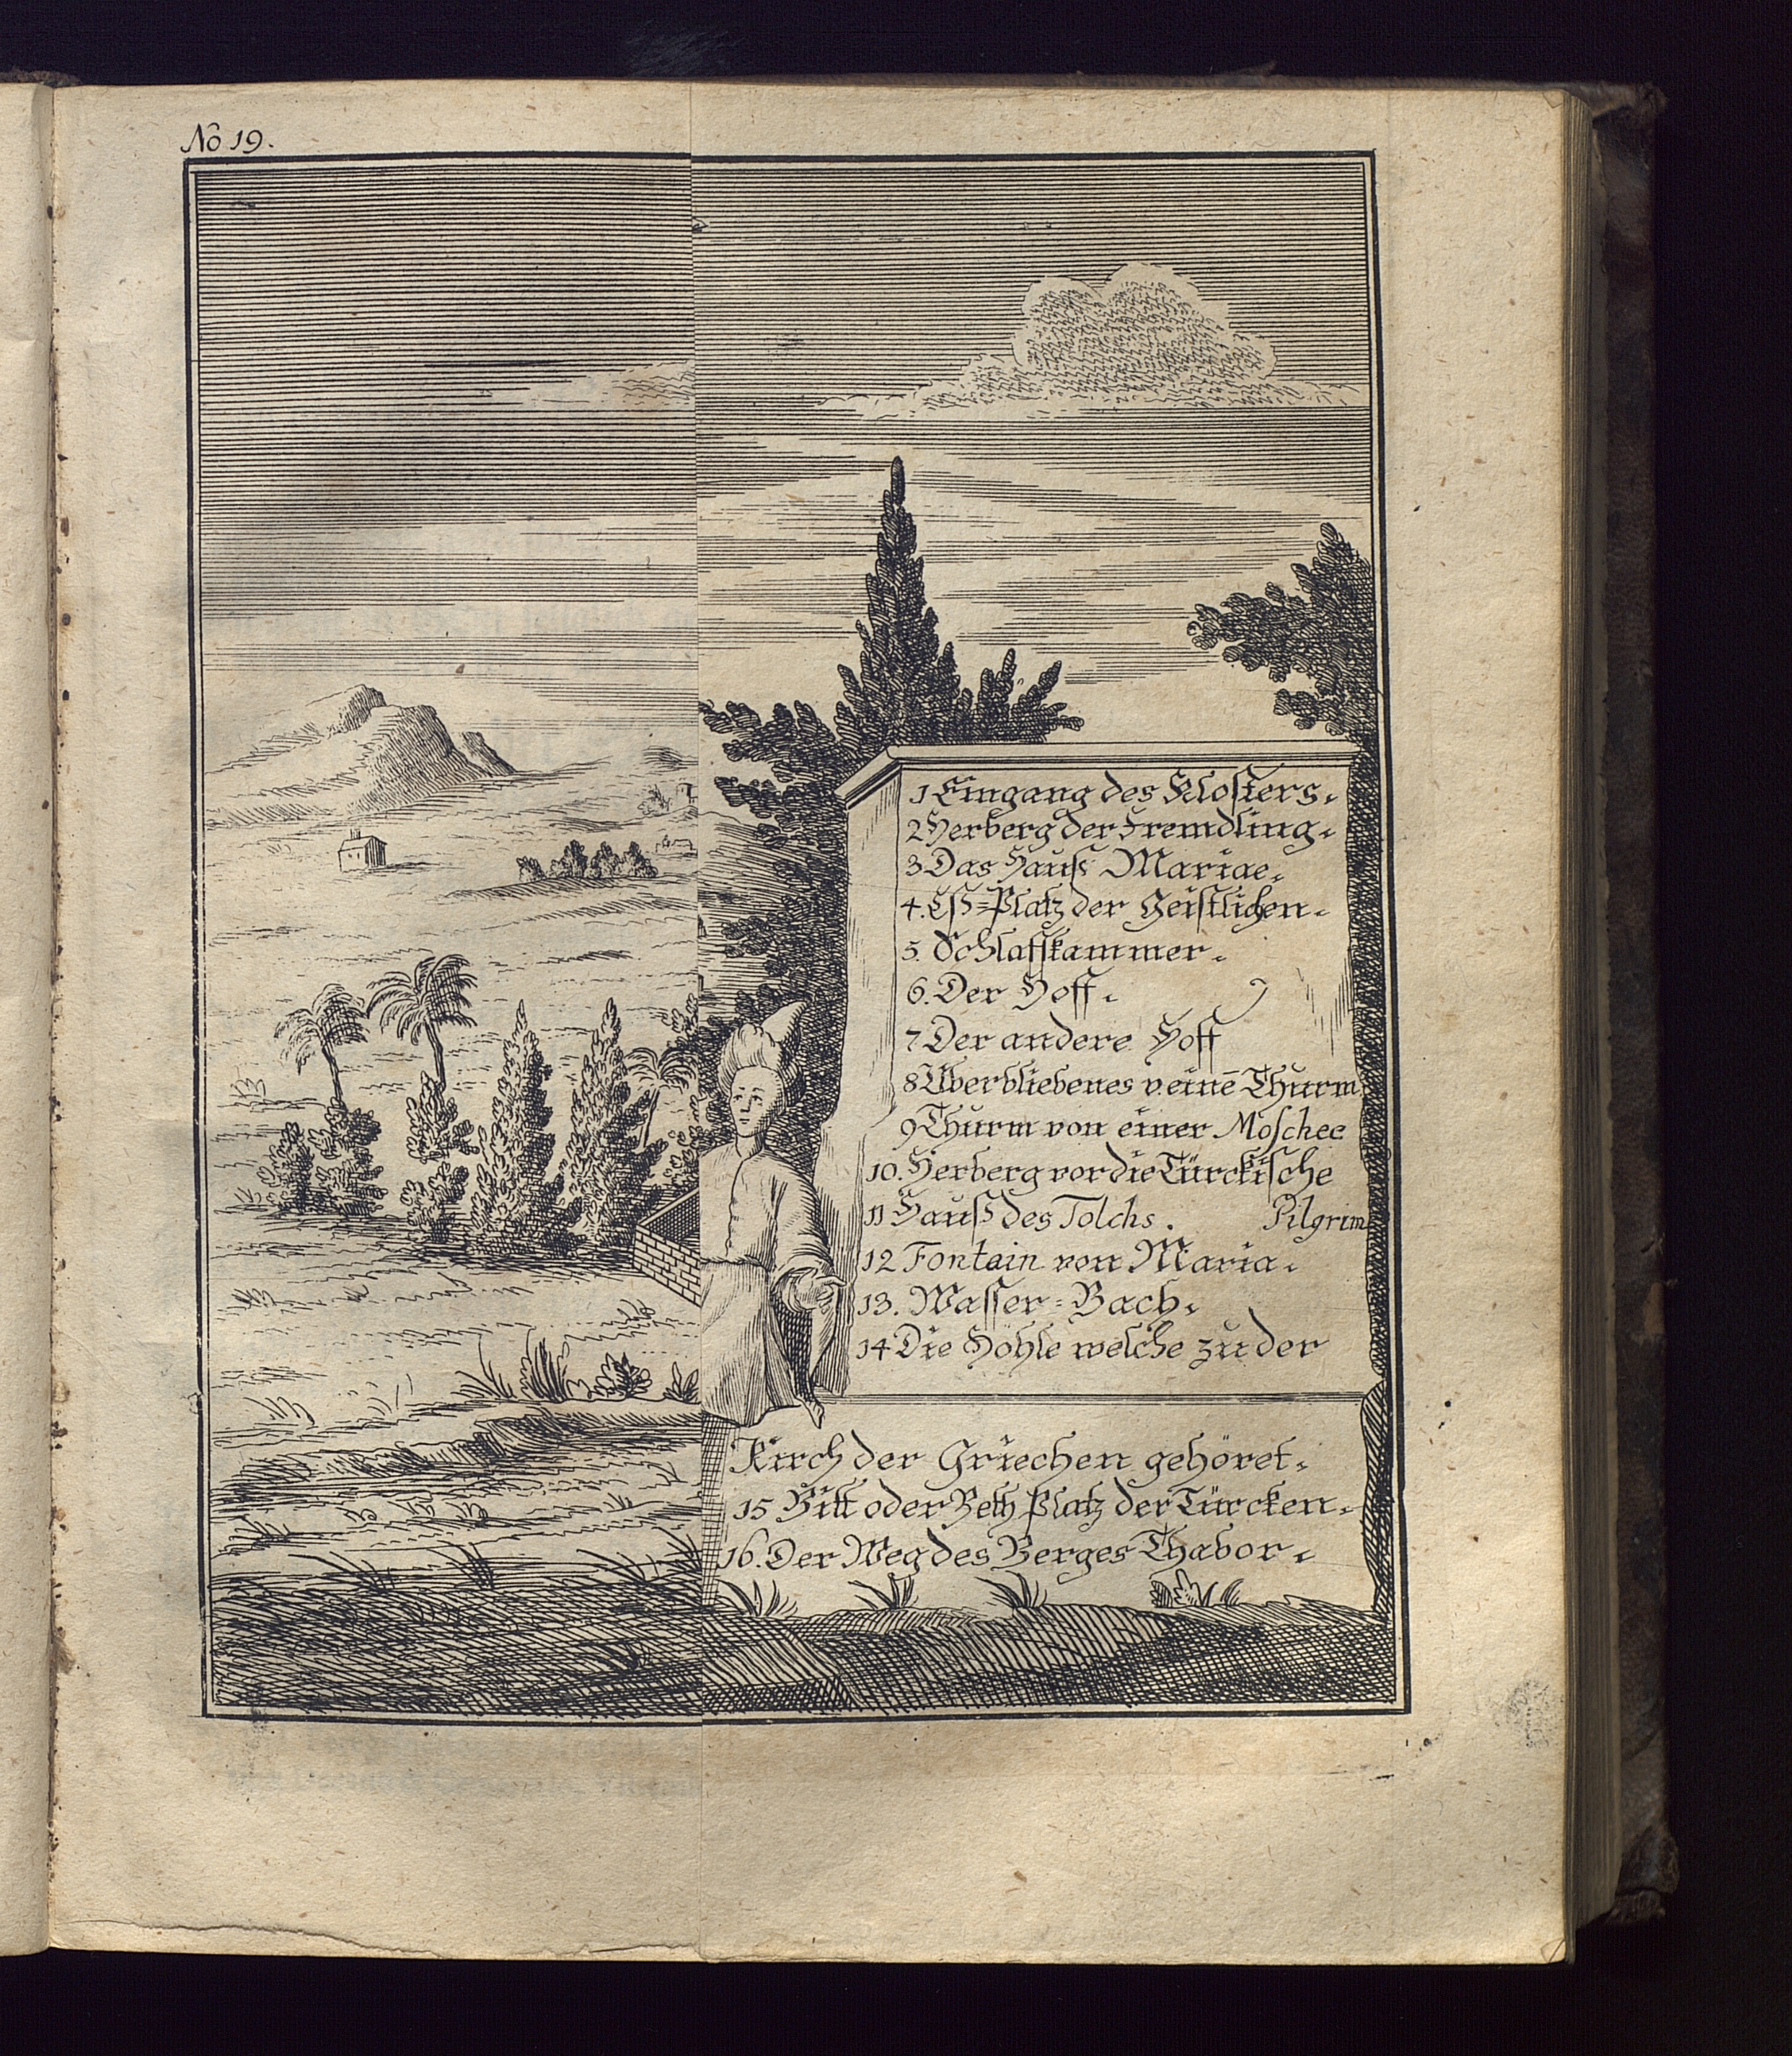 No 19.
1 Eingang des Klosters.
2 Herberg der Fremdling.
3 Das Hauß Mariae.
4. Eß=Platz der Geistlichen.
5. Schlafskammer.
6. Der Hoff.
7 Der andere Hoff
8 Uberbliebenes v. einē Thurm.
9 Thurm von einer Moschee
10. Herberg vor die Türckische
Pilgrim
11 Hauß des Tolchs.
12 Fontain von Maria.
13. Wasser=Bach.
14 Die Höhle welche zu der
Kirch der Griechen gehöret.
15 Bitt oder Beth Platz der Türcken.
16. Der Weg des Berges Thabor.